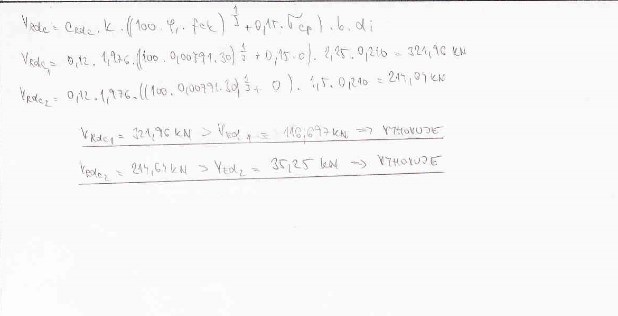 VRdc = CRdc . k . (100 . φ1 . fck)^1/3 + 0,15 . σcp) . b . di
VRdc1 = 0,12 . 1,976 . ((100 . 0,00791 . 30)^1/3 + 0,15 . 0) . 2,25 . 0,210 = 321,96 kN
VRdc2 = 0,12 . 1,976 . ((100 . 0,00791 . 30)^1/3 + 0) . 1,5 . 0,210 = 214,64 kN
VRdc1 = 321,96 kN > VEd1 = 116,697 kN ⇒ VYHOVUJE
VRdc2 = 214,64 kN > VEd2 = 35,25 kN ⇒ VYHOVUJE